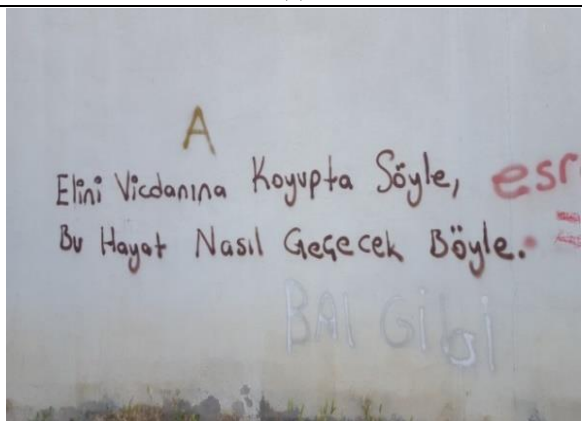 A
Elini Vicdanına Koyupta Söyle,
Bu Hayat Nasıl Geçecek Böyle.
esr
BAl Gibi